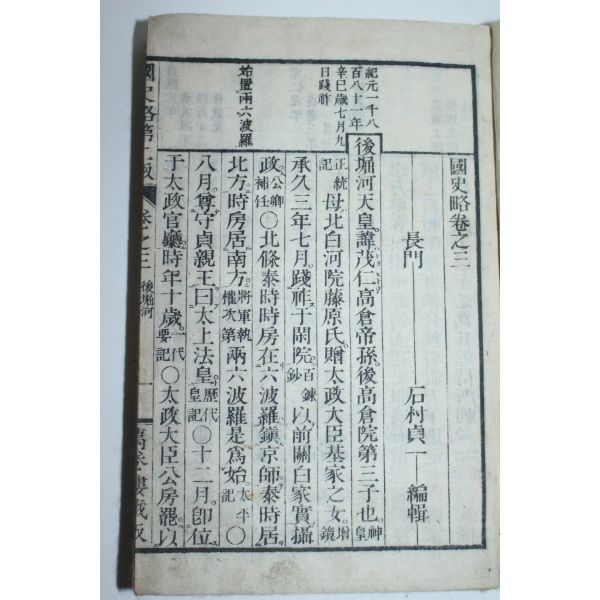 國史略卷之三
長門 石村貞一 編輯
紀元一千八
百八十一年
辛巳歲七月九
日踐祚
後堀河天皇諱茂仁高倉帝孫後高倉院第三子也神皇
正統記母北白河院藤原氏贈太政大臣基家之女增鏡
承久三年七月踐祚于閑院百鍊鈔以前關白家實攝
政公卿補任〇北條泰時時房在六波羅鎭京師泰時居
始置兩六波羅
北方時房居南方將軍執權次第兩六波羅是爲始太平記〇
八月尊守貞親王曰太上法皇歷代皇記〇十二月卽位
于太政官廳時年十歲一代要記〇太政大臣公房罷以
國史略第二版 卷之三 後堀河 一